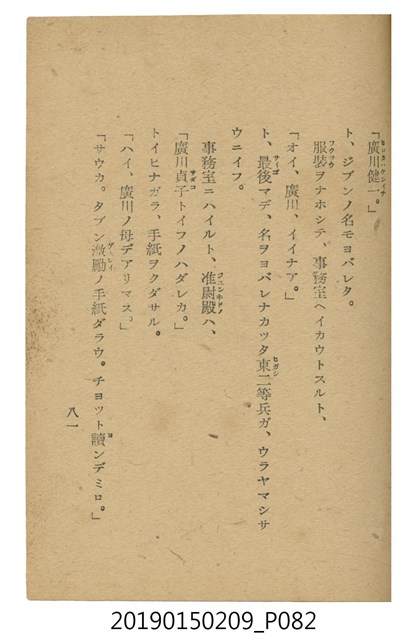 「廣川健一。」
ト、ジブンノ名モヨバレタ。
服裝ヲナホシテ、事務室ヘイカウトスルト、
「オイ、廣川、イイナア。」
ト、最後マデ、名ヲヨバレナカッタ東二等兵ガ、ウラヤマシサ
ウニイフ。
事務室ニハイルト、准尉殿ハ、
「廣川貞子トイフノハダレカ。」
トイヒナガラ、手紙ヲクダサル。
「ハイ、廣川ノ母デアリマス。」
「サウカ。タブン激勵ノ手紙ダラウ。チョット讀ンデミロ。」
八一
20190150209_P082